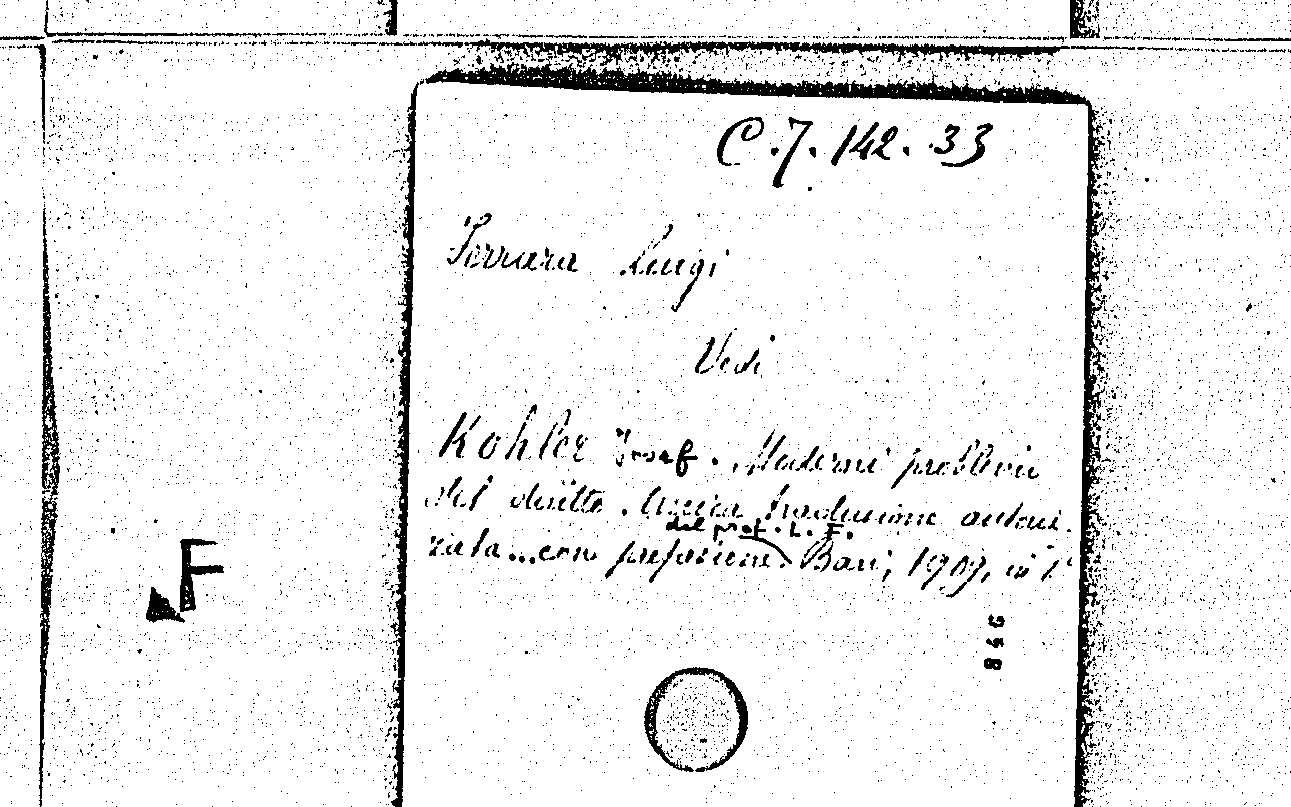 C.7.142.33
Ferrara Luigi
Vedi
Kohler Josef. Moderni problemi
del diritto. Unica traduzione autoriz-
del prof. L. F.
zata...con prefazione. Bari, 1909, in
F